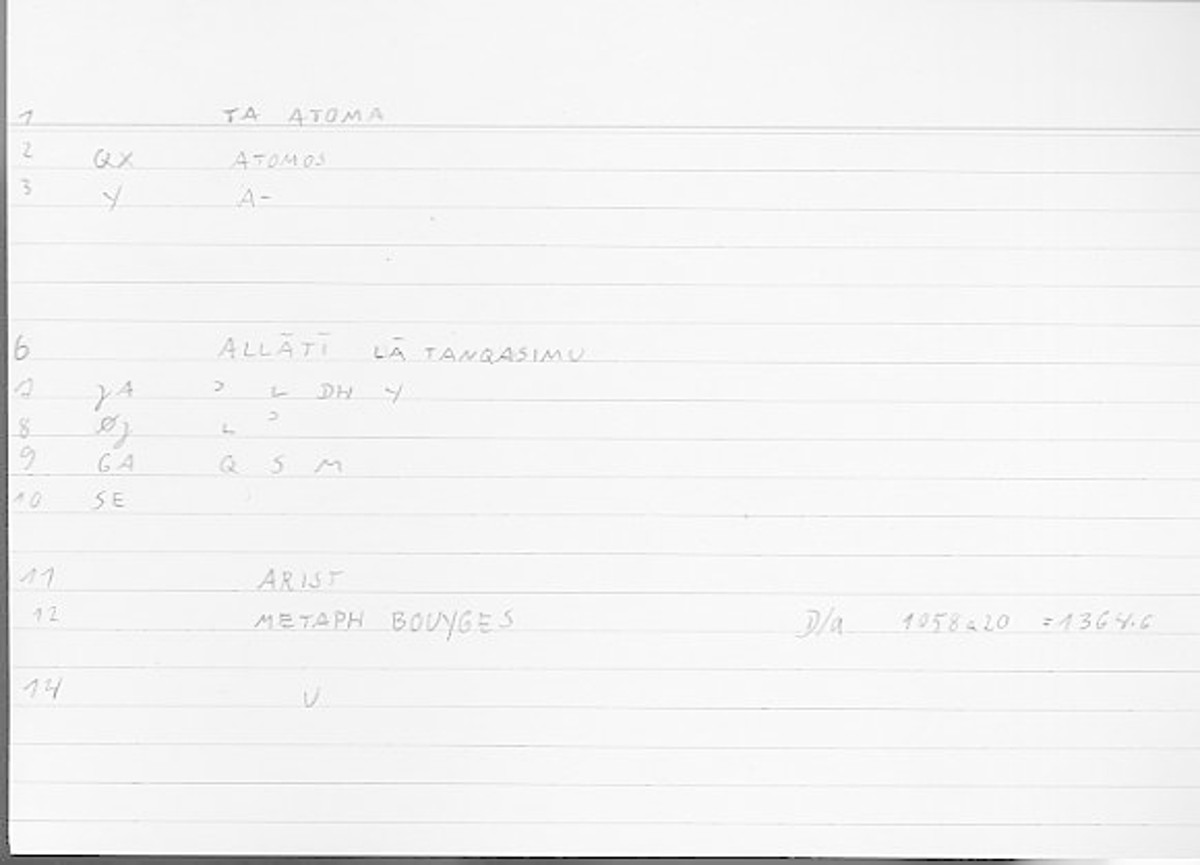 1 TA ATOMA
2 QX ATOMOS
3 Y A-
6 ALLĀTĪ LĀ TANQASIMU
7 ȝA ɔ L DH Y
8 Øȝ L ɔ
9 GA Q S M
10 SE
11 ARIST
12 METAPH BOUYGES D/a 1058a20 =1364.6
14 U